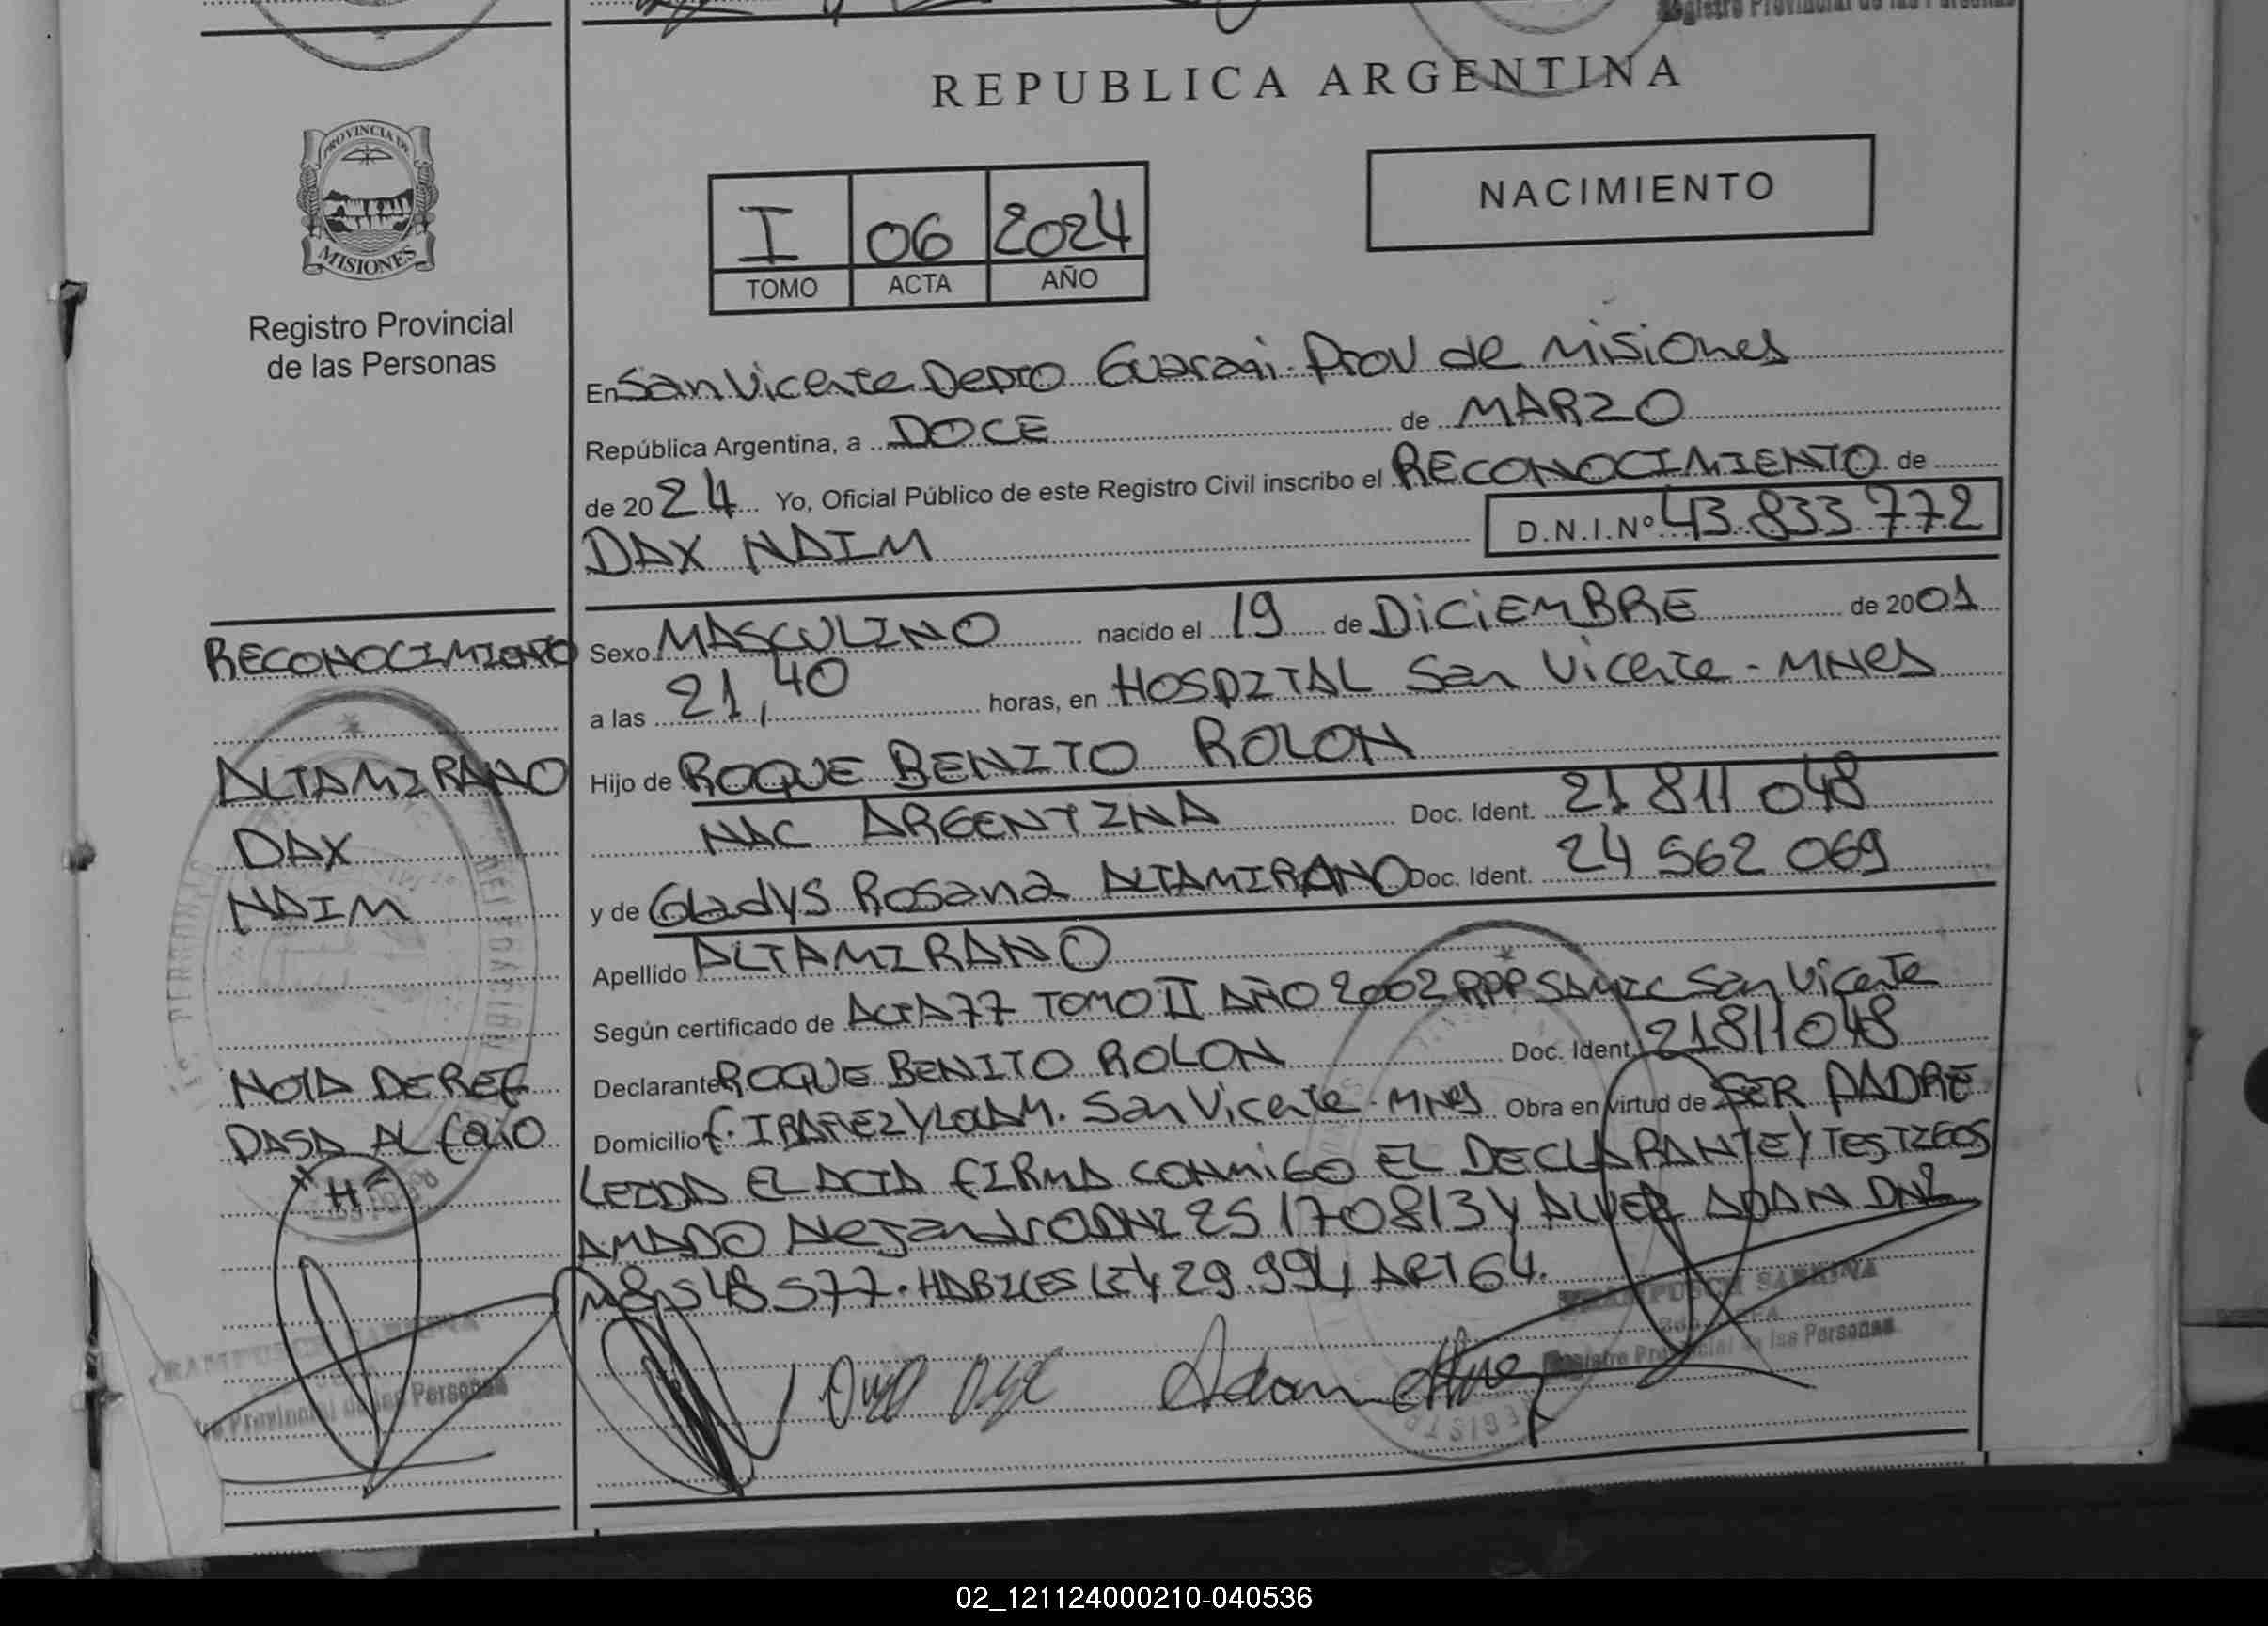 Registro Provincial de las Personas
REPUBLICA ARGENTINA
PROVINCIA DE
MISIONES
Registro Provincial
de las Personas
I 06 2024
TOMO ACTA AÑO
NACIMIENTO
En San Vicente Depto Guarani. Prov de Misiones
República Argentina, a DOCE de MARZO
de 2024 Yo, Oficial Público de este Registro Civil inscribo el RECONOCIMIENTO de
DAX NAIM D.N.I.Nº 43.833.772
RECONOCIMIENTO
ALTAMIRANO
DAX
NAIM
NOTA DE REF
PASA AL FOLIO
"H"
Sexo MASCULINO nacido el 19 de DICIEMBRE de 2001
a las 21,40 horas, en HOSPITAL San Vicente - MNES
Hijo de ROQUE BENITO ROLON
NAC ARGENTINA Doc. Ident. 21 811 048
y de Gladys Rosana ALTAMIRANO Doc. Ident. 24 562 069
Apellido ALTAMIRANO
Según certificado de ACTA 77 TOMO II AÑO 2002 RPP SAMIC San Vicente
Declarante ROQUE BENITO ROLON Doc. Ident. 21811048
Domicilio San Vicente - MNES Obra en virtud de SER PADRE
LEIDA EL ACTA FIRMA CONMIGO EL DECLARANTE Y TESTIGOS
AMADO Alejandro DNI 25 170813 Y ALVEZ ADAN DNI
HABILES LEY 29.994 ART 64.
Adan
Registro Provincial de las Personas
02_121124000210-040536